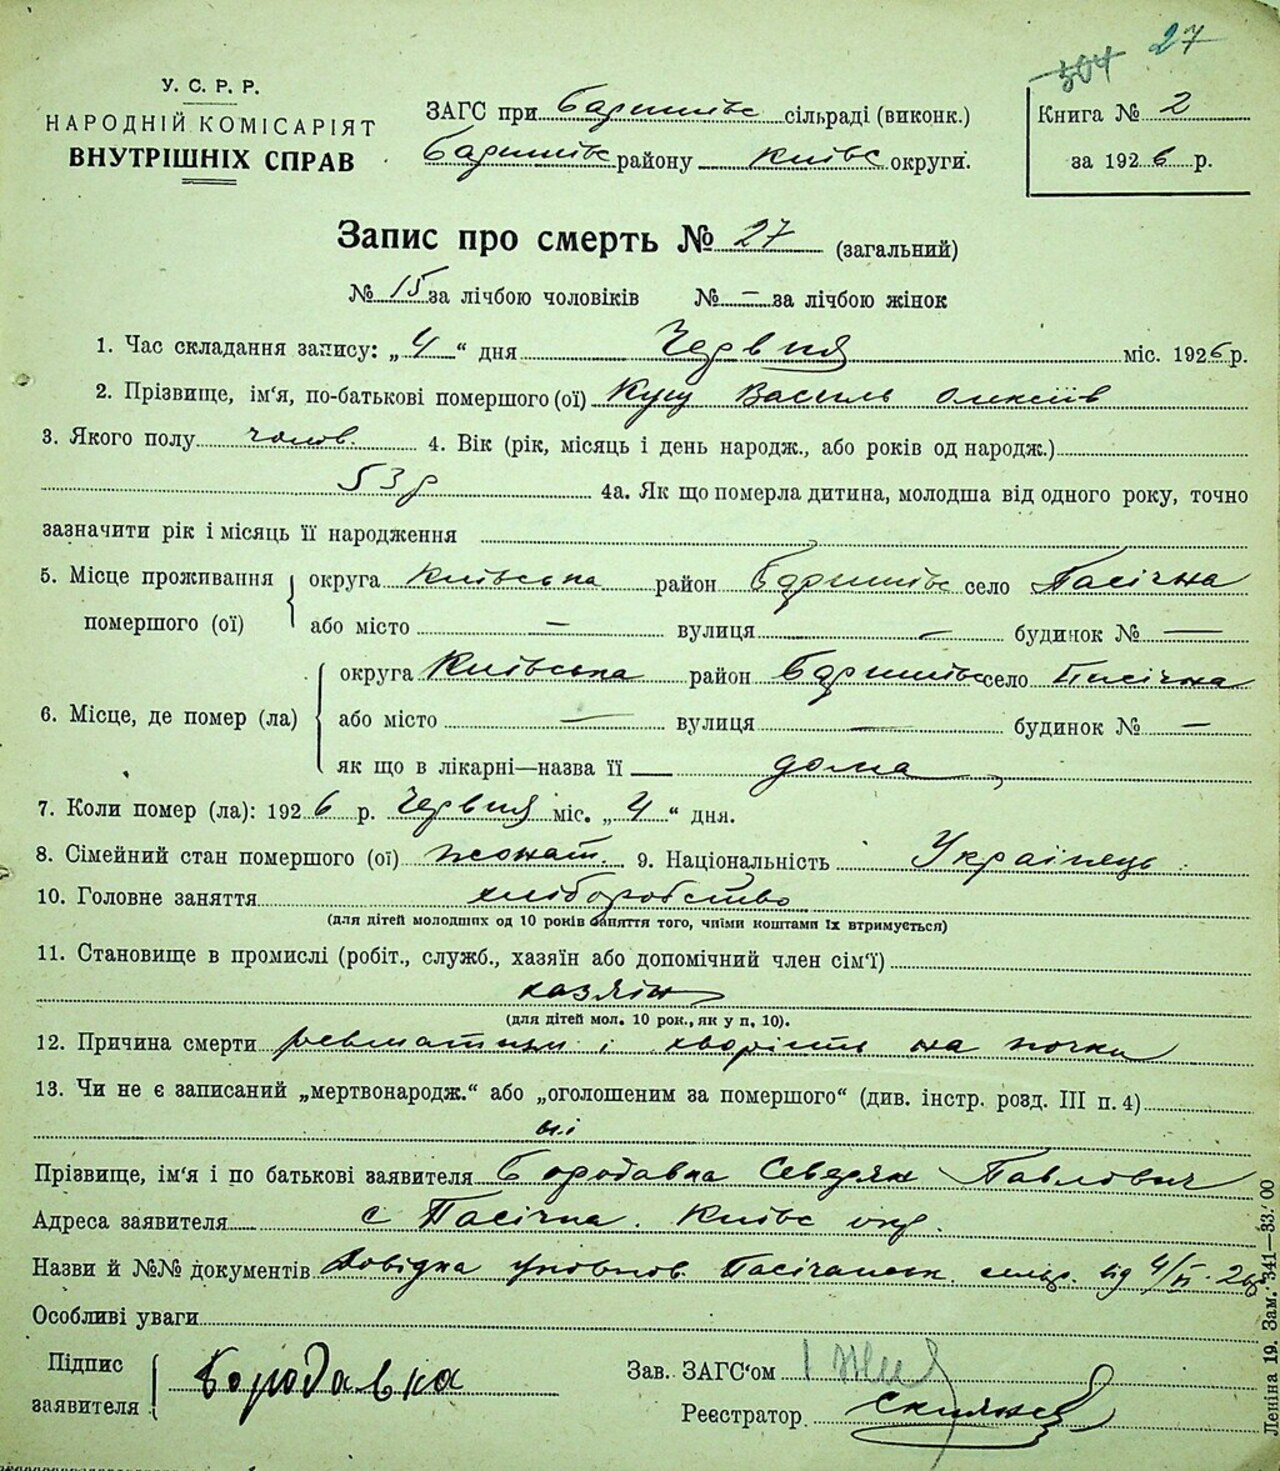 304 27
У. С. Р. Р.
НАРОДНІЙ КОМІСАРІЯТ
ВНУТРІШНІХ СПРАВ
ЗАГС при Баришівс сільраді (виконк.)
Баришівс району Київс округи.
Книга № 2
за 1926 р.
Запис про смерть № 27 (загальний)
№ 15 за лічбою чоловіків № — за лічбою жінок
1. Час складання запису: „4“ дня Червня міс. 1926 р.
2. Прізвище, ім‘я, по-батькові помершого (ої) Куц Василь Олексіїв
3. Якого полу чолов. 4. Вік (рік, місяць і день народж., або років од народж.)
53 р 4а. Як що померла дитина, молодша від одного року, точно
зазначити рік і місяць її народження
5. Місце проживання помершого (ої) округа Київська район Баришівс село Пасічна
або місто — вулиця — будинок № —
6. Місце, де помер (ла) округа Київська район Баришівс село Пасічна
або місто — вулиця — будинок № —
як що в лікарні—назва її — дома
7. Коли помер (ла): 1926 р. Червня міс. „4“ дня.
8. Сімейний стан помершого (ої) жонат. 9. Національність Українець
10. Головне заняття хліборобство
(для дітей молодших од 10 років заняття того, чиїми коштами їх втримується)
11. Становище в промислі (робіт., служб., хазяїн або допомічний член сім‘ї)
хазяїн
(для дітей мол. 10 рок., як у п. 10).
12. Причина смерти ревматизм і хворість на почки
13. Чи не є записаний „мертвонародж.“ або „оголошеним за помершого“ (див. інстр. розд. III п. 4)
ні
Прізвище, ім‘я і по батькові заявителя Бородавка Северян Павлович
Адреса заявителя с Пасічна. Київс окр.
Назви й №№ документів Довідка уповнов. Пасічанськ. сельр. від 4/VI-26р
Особливі уваги
Підпис заявителя Бородавка
Зав. ЗАГС‘ом
Реєстратор
Леніна 19. Зам. 341—33.'00